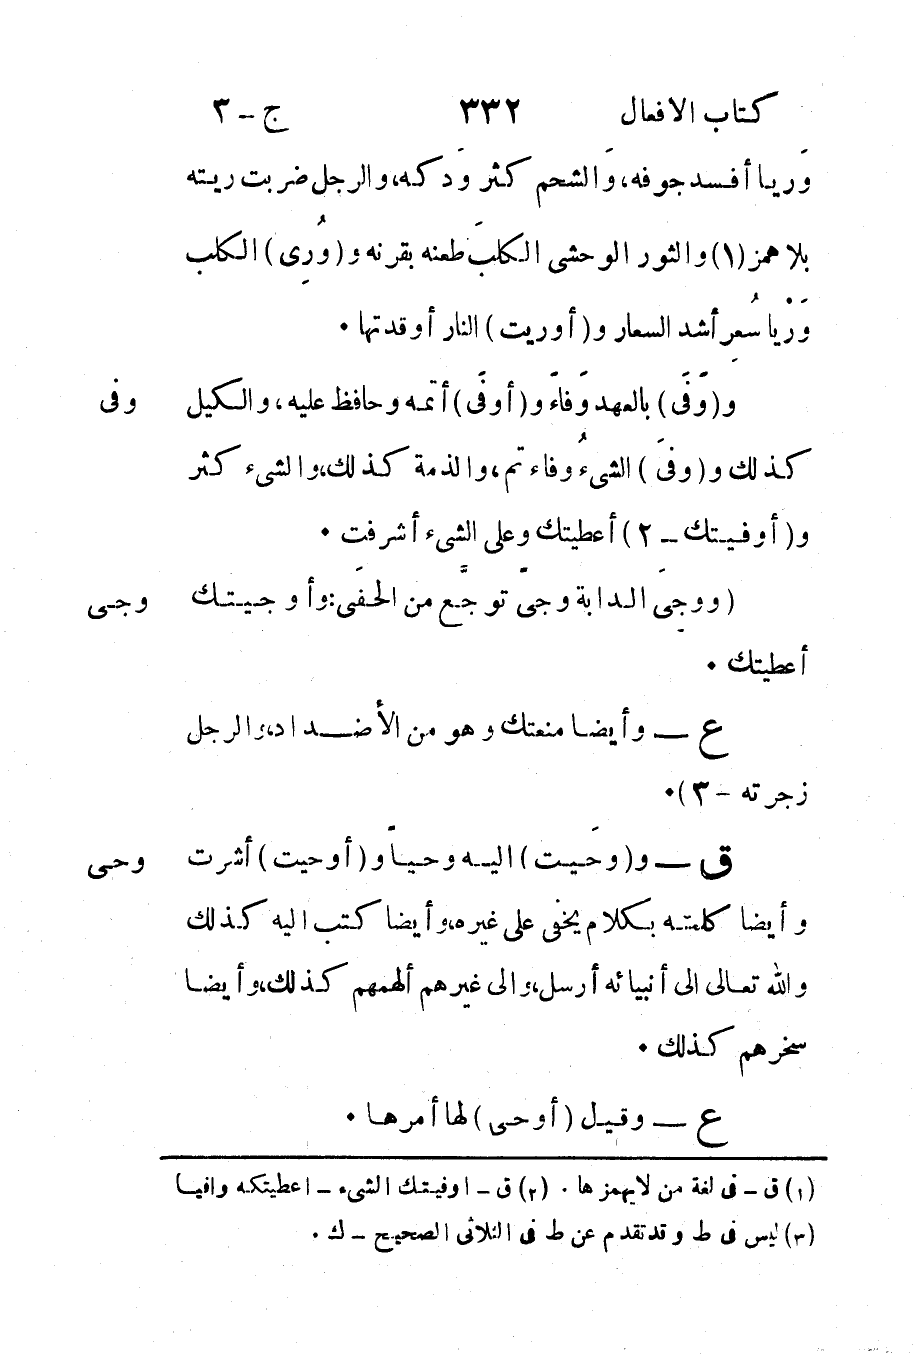 كتاب الافعال ٣٣٢ ج - ٣
وَريا أفسد جوفه، وَالشحم كثر وَدكه، والرجل ضربت ريته
بلا همز (١) والثور الوحشى الكلبَ طعنه بقرنه و (وُرِى) الكلب
وَرْيا سُعِر أشد السعار و (أوريت) النار أوقدتها ٠
و (وَفَى) بالعهد وَفاءً و (أوفَى) أتمه وحافظ عليه، والكيل وفى
كذلك و (وفَى) الشىءُ وفاء تم، والذمة كذلك، والشىء كثر
و (أوفيتك - ٢) أعطيتك وعلى الشىء أشرفت ٠
(ووجِى الدابة وجىً توجّع من الحفَى: وأوجيتك وجى
أعطيتك ٠
ع - وأيضا منعتك وهو من الأضداد، والرجل
زجرته - ٣) ٠
ق - و (وحَيت) اليه وحياً و (أوحيت) أشرت وحى
وأيضا كلمته بكلام يخفى على غيره، وأيضا كتب اليه كذلك
والله تعالى الى أنبيائه أرسل، والى غيرهم ألهمهم كذلك، وأيضا
سخرهم كذلك ٠
ع - وقيل (أوحى) لها أمرها ٠
(١) ق - فى لغة من لايهمزها ٠ (٢) ق - اوفيتك الشىء - اعطيتكه وافيا
(٣) ليس فى ط وقد تقدم عن ط فى الثلاثى الصحيح - ك ٠